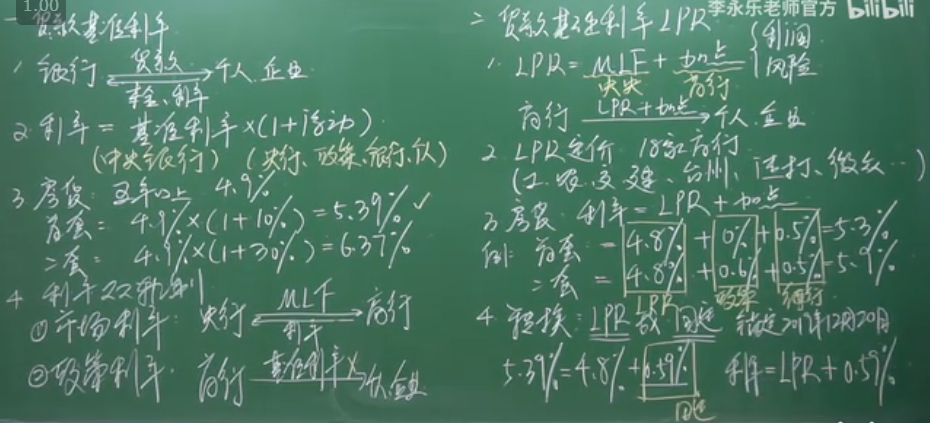 1.00
李永乐老师官方 bilibili
一 贷款基准利率
1. 银行 贷款 个人、企业
本金、利率
2. 利率 = 基准利率×(1+浮动)
(中央银行) (央行、政策、银行、个人)
3. 房贷 五年以上 4.9%
首套 = 4.9%×(1+10%) = 5.39% ✓
二套: 4.9%×(1+30%) = 6.37%
4 利率双轨制
① 市场利率: 央行 MLF 商行
利率
② 政策利率: 商行 基准利率× 个人、企业
二 贷款基础利率 LPR
1. LPR = MLF + 加点 { 利润 风险
央央 商行
商行 LPR+加点 个人、企业
2 LPR定价 18家商行
(工、农、交、建、台州、渣打、微众…)
3 房贷: 利率 = LPR + 加点
例: 首套 = 4.8% + 0% + 0.5% = 5.3%
二套 = 4.8% + 0.6% + 0.5% = 5.9%
LPR 政策 银行
4. 转换: LPR 或 固定 2019年12月20日
5.39% = 4.8% + 0.59% 利率 = LPR + 0.59%
固定